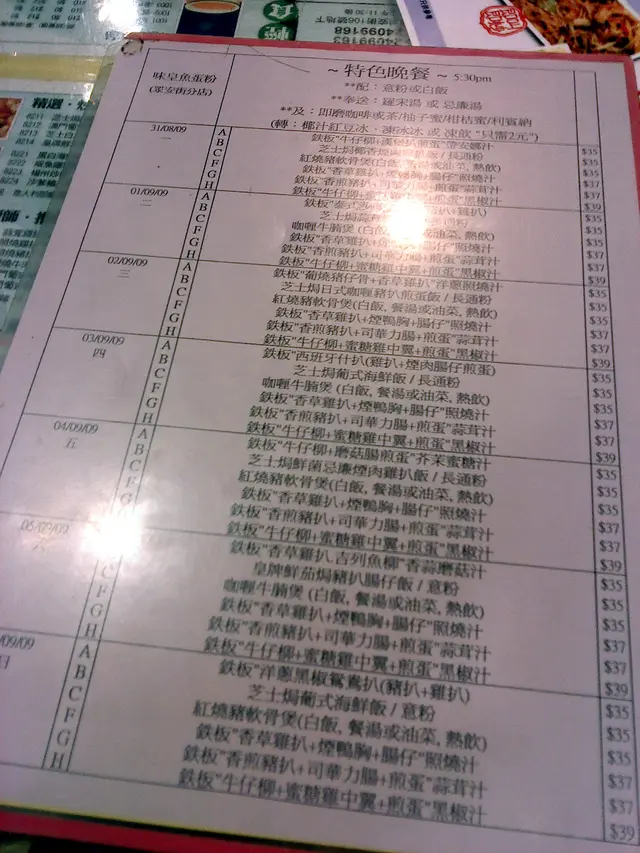 4099168
味皇魚蛋粉
~ 特色晚餐 ~ 5:30pm
**配：意粉或白飯
**奉送：羅宋湯 或 忌廉湯
**及：即磨咖啡或茶/柚子蜜/柑桔蜜/利賓納
(轉：椰汁紅豆冰．凍水冰 或 凍飲 "只需2元")
31/08/09 一
A 鉄板"牛仔柳+漢堡扒煎蛋"
B 芝士焗椰香煙肉 飯 / 長通粉 $35
C 紅燒豬軟骨煲(白飯, 餐湯或油菜, 熱飲) $35
F 鉄板"香草雞扒+煙鴨胸+腸仔"照燒汁 $35
G 鉄板"香煎豬扒+司華力腸+煎蛋"蒜茸汁 $37
H 鉄板"牛仔柳+蜜糖雞中翼+煎蛋"黑椒汁 $37
$39
01/09/09 二
A 鉄板"泰式 雞扒)
B 芝士焗
C 咖喱牛腩煲 (白飯, 或油菜, 熱飲) $35
F 鉄板"香草雞扒+ +腸仔"照燒汁 $35
G 鉄板"香煎豬扒+司華力腸+煎蛋"蒜茸汁 $37
H 鉄板"牛仔柳+蜜糖雞中翼+煎蛋"黑椒汁 $37
$39
02/09/09 三
A 鉄板"葡燒豬仔骨+香草雞扒"洋蔥照燒汁
B 芝士焗日式咖喱豬扒煎蛋飯 / 長通粉 $35
C 紅燒豬軟骨煲(白飯, 餐湯或油菜, 熱飲) $35
F 鉄板"香草雞扒+煙鴨胸+腸仔"照燒汁 $35
G 鉄板"香煎豬扒+司華力腸+煎蛋"蒜茸汁 $37
H 鉄板"牛仔柳+蜜糖雞中翼+煎蛋"黑椒汁 $37
$39
03/09/09 四
A 鉄板"西班牙什扒(雞扒+煙肉腸仔煎蛋)
B 芝士焗葡式海鮮飯 / 長通粉 $35
C 咖喱牛腩煲 (白飯, 餐湯或油菜, 熱飲) $35
F 鉄板"香草雞扒+煙鴨胸+腸仔"照燒汁 $35
G 鉄板"香煎豬扒+司華力腸+煎蛋"蒜茸汁 $37
H 鉄板"牛仔柳+蜜糖雞中翼+煎蛋"黑椒汁 $37
$39
04/09/09 五
A 鉄板"牛仔柳+磨菇腸煎蛋"芥茉蜜糖汁
B 芝士焗鮮菌忌廉煙肉雞扒飯 / 長通粉 $35
C 紅燒豬軟骨煲(白飯, 餐湯或油菜, 熱飲) $35
F 鉄板"香草雞扒+煙鴨胸+腸仔"照燒汁 $35
G 鉄板"香煎豬扒+司華力腸+煎蛋"蒜茸汁 $37
H 鉄板"牛仔柳+蜜糖雞中翼+煎蛋"黑椒汁 $37
$39
05/09/09
鉄板"香草雞扒.吉列魚柳"香蒜磨菇汁
皇牌鮮茄焗豬扒腸仔飯 / 意粉 $35
C 咖喱牛腩煲 (白飯, 餐湯或油菜, 熱飲) $35
F 鉄板"香草雞扒+煙鴨胸+腸仔"照燒汁 $35
G 鉄板"香煎豬扒+司華力腸+煎蛋"蒜茸汁 $37
H 鉄板"牛仔柳+蜜糖雞中翼+煎蛋"黑椒汁 $37
$39
/09/09 日
A 鉄板"洋蔥黑椒鴛鴦扒(豬扒+雞扒)
B 芝士焗葡式海鮮飯 / 意粉 $35
C 紅燒豬軟骨煲(白飯, 餐湯或油菜, 熱飲) $35
F 鉄板"香草雞扒+煙鴨胸+腸仔"照燒汁 $35
G 鉄板"香煎豬扒+司華力腸+煎蛋"蒜茸汁 $37
H 鉄板"牛仔柳+蜜糖雞中翼+煎蛋"黑椒汁 $37
$39